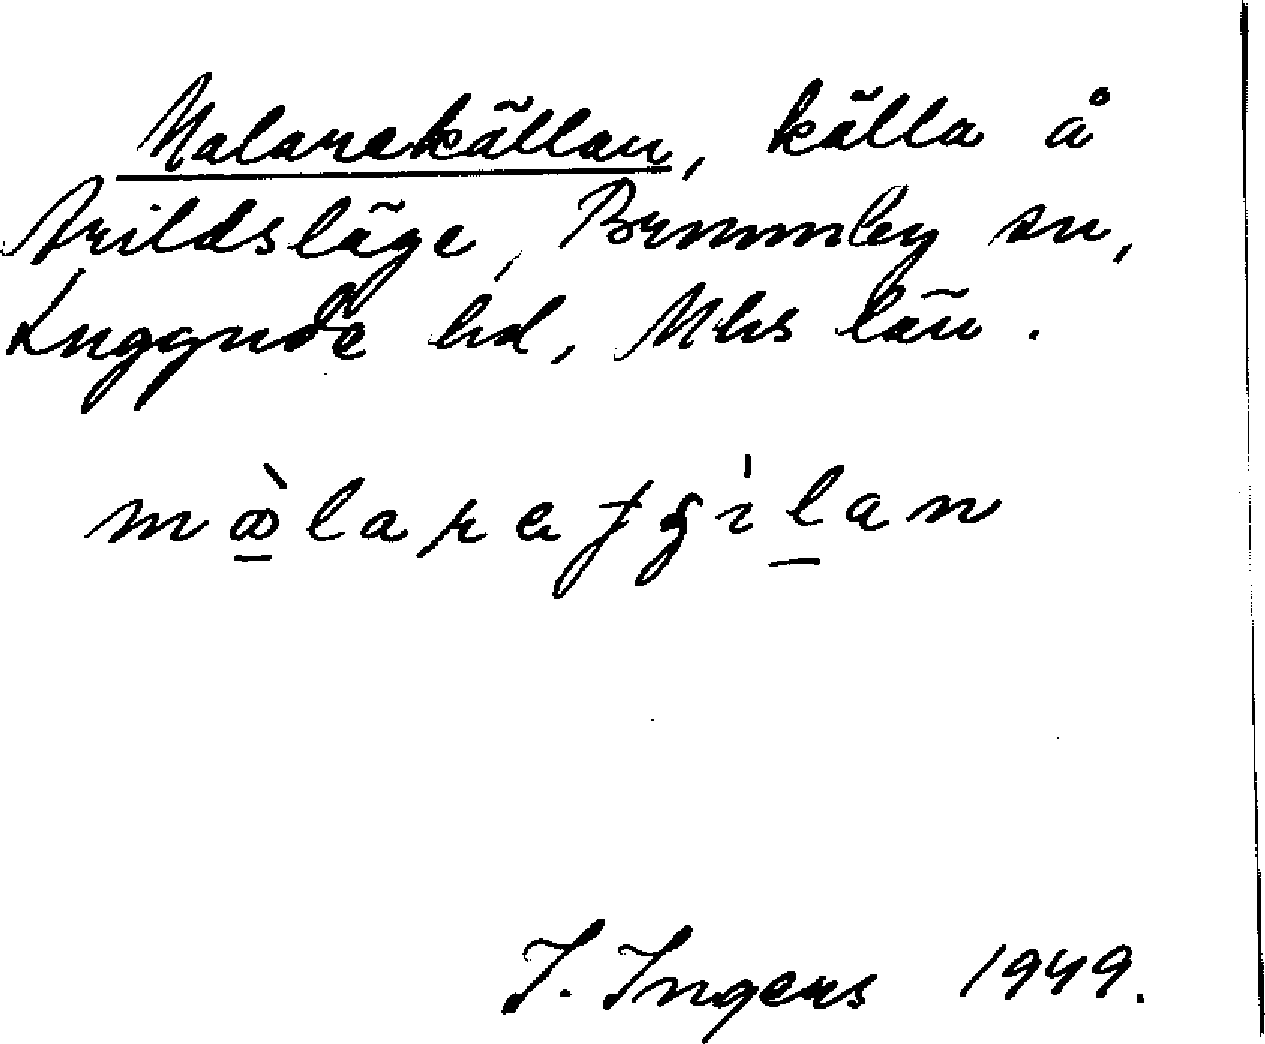 Malarekällan, källa å
Arildsläge, Brunnby sn,
Luggude hd, Mhs län.
I. Ingers 1949.